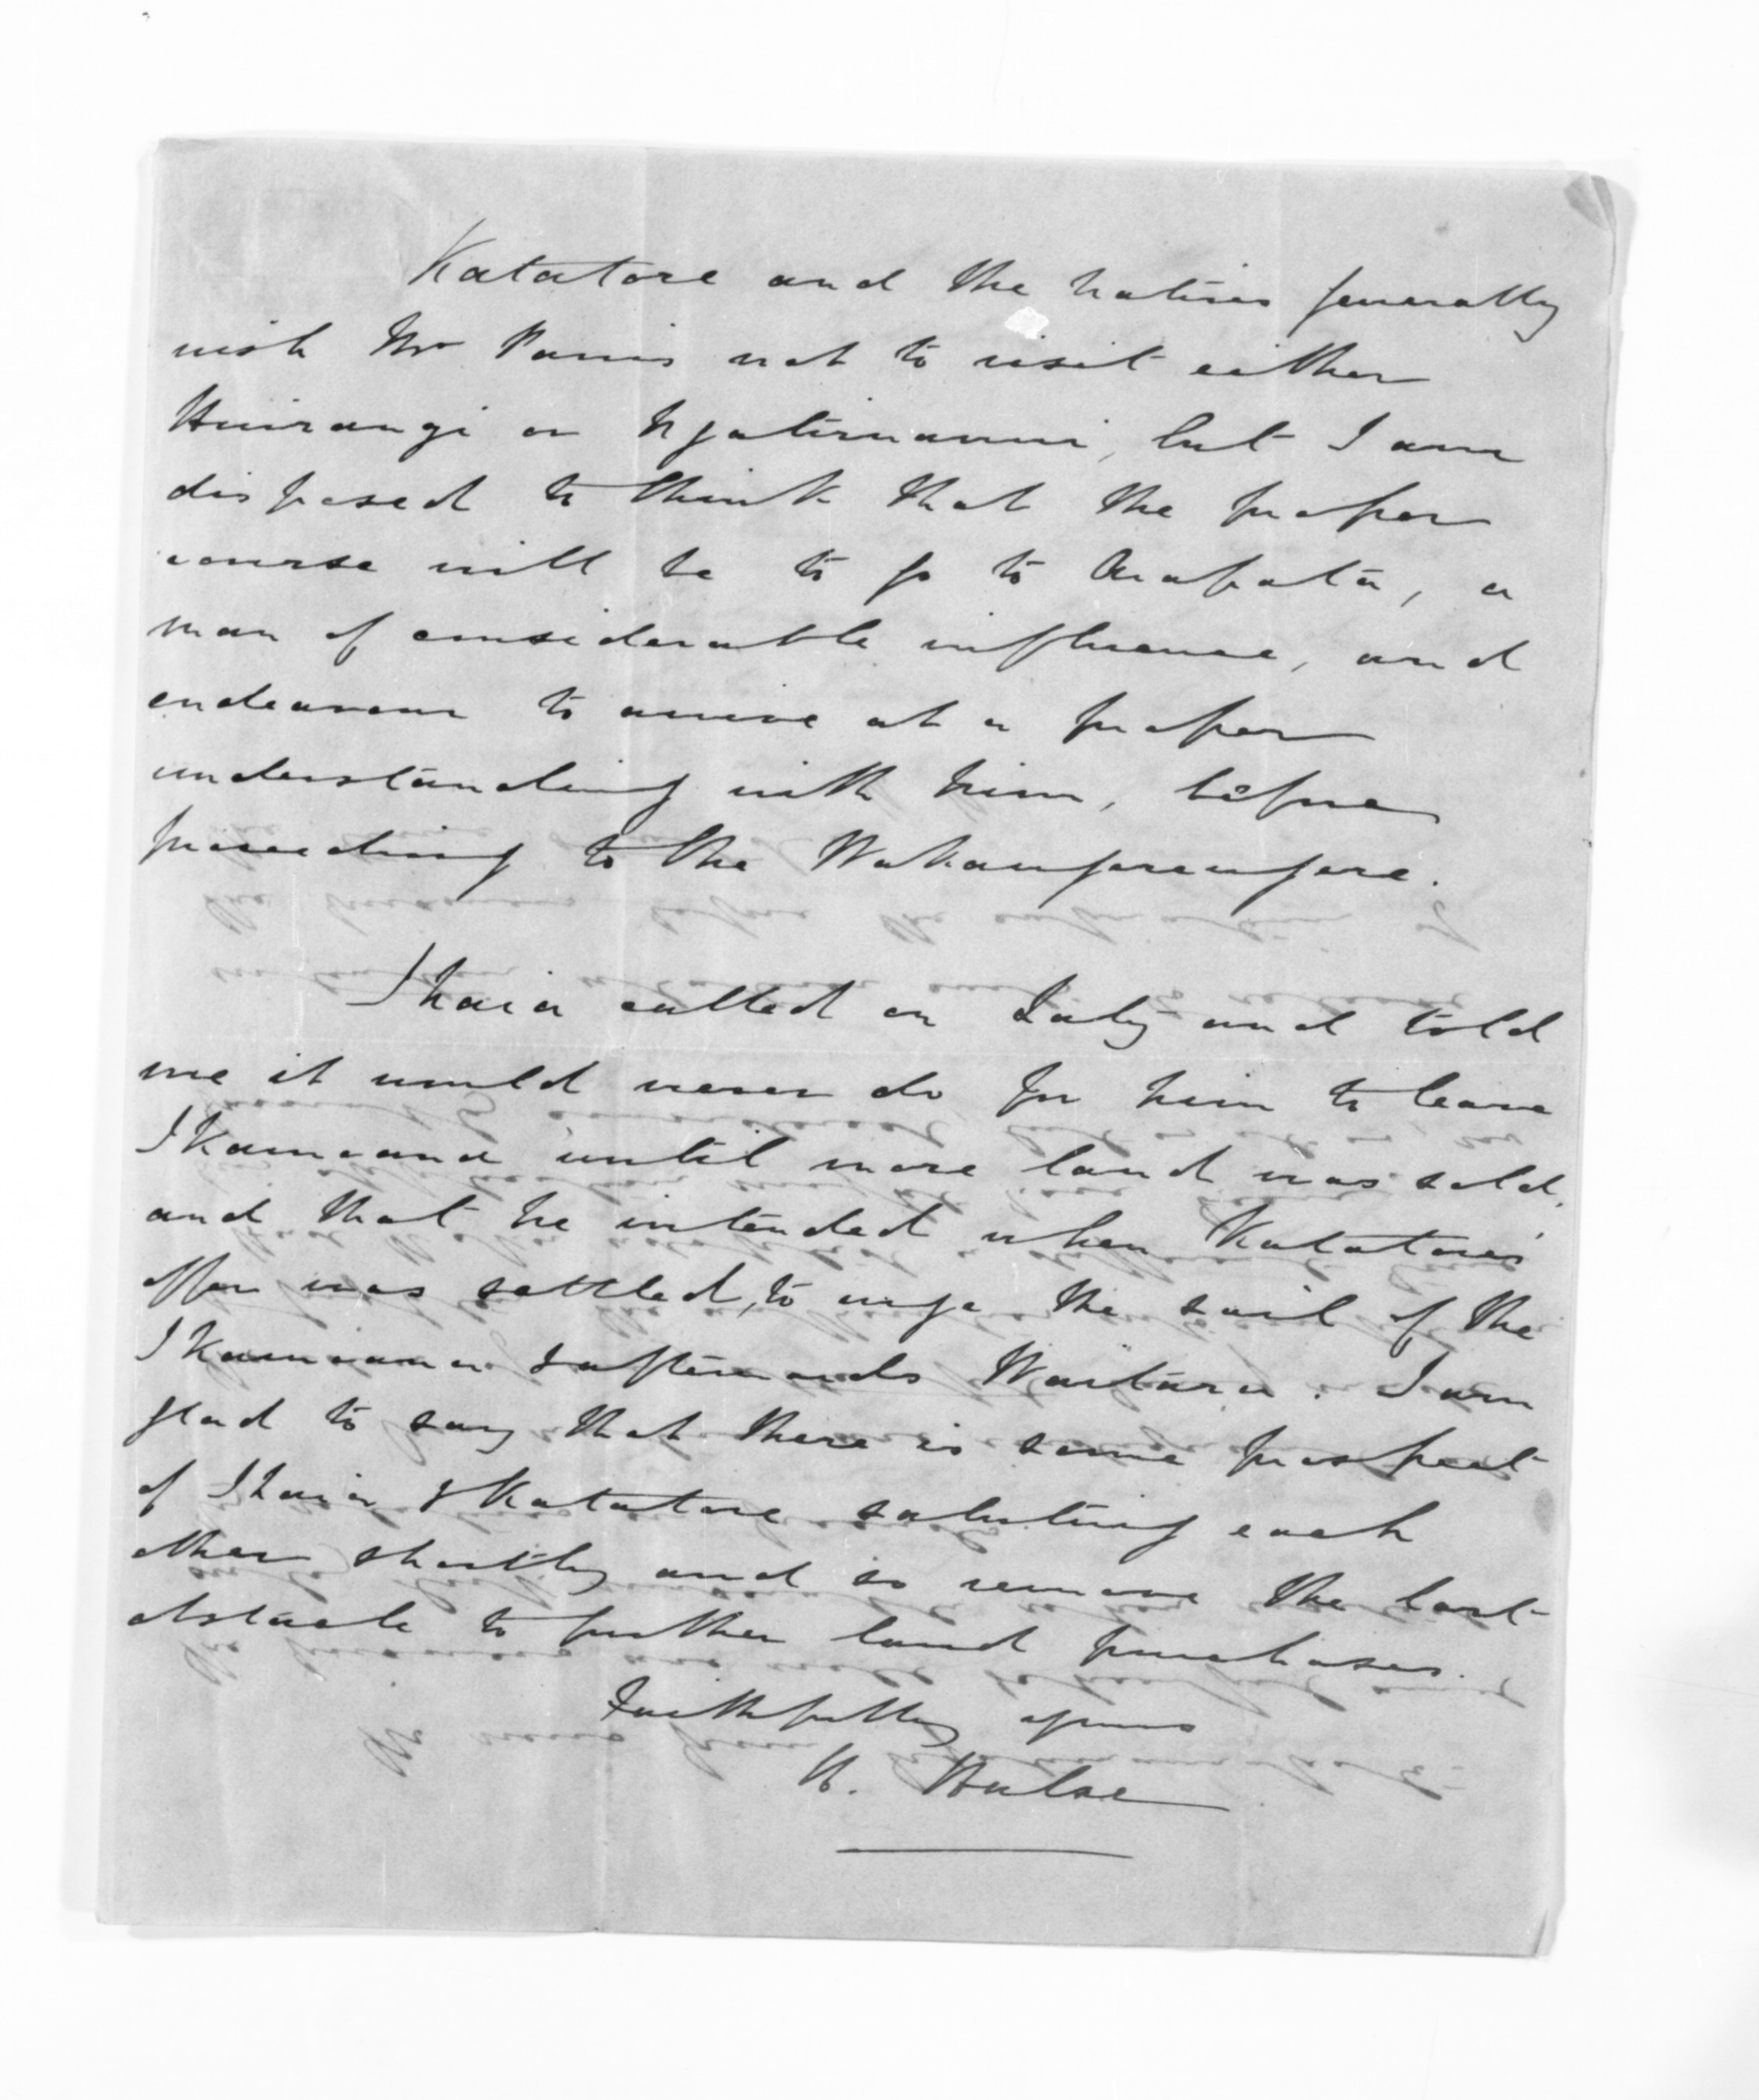 Katatore and the natives generally
wish Mr Parris not to visit either
Huirangi or Ngatiruanui, but I am
disposed to think that the proper
course will be to go to Arapata, a
man of considerable influence, and
endeavour to arrive at a proper
understanding with him, before
proceeding to the Wakangerengere.
Ihaia called on Saty and told
me it would never do for him to leave
Ikamoana until more land was sold,
and that he intended when Katatore's
offer was settled, to urge the sail of the
Ikamoana & afterwards Waitara. I am
glad to say that there is some prospect
of Ihaia & Katatore saluting each
other shortly and so remove the last
obstacle to further land purchases.
Faithfully yours
H. Halse